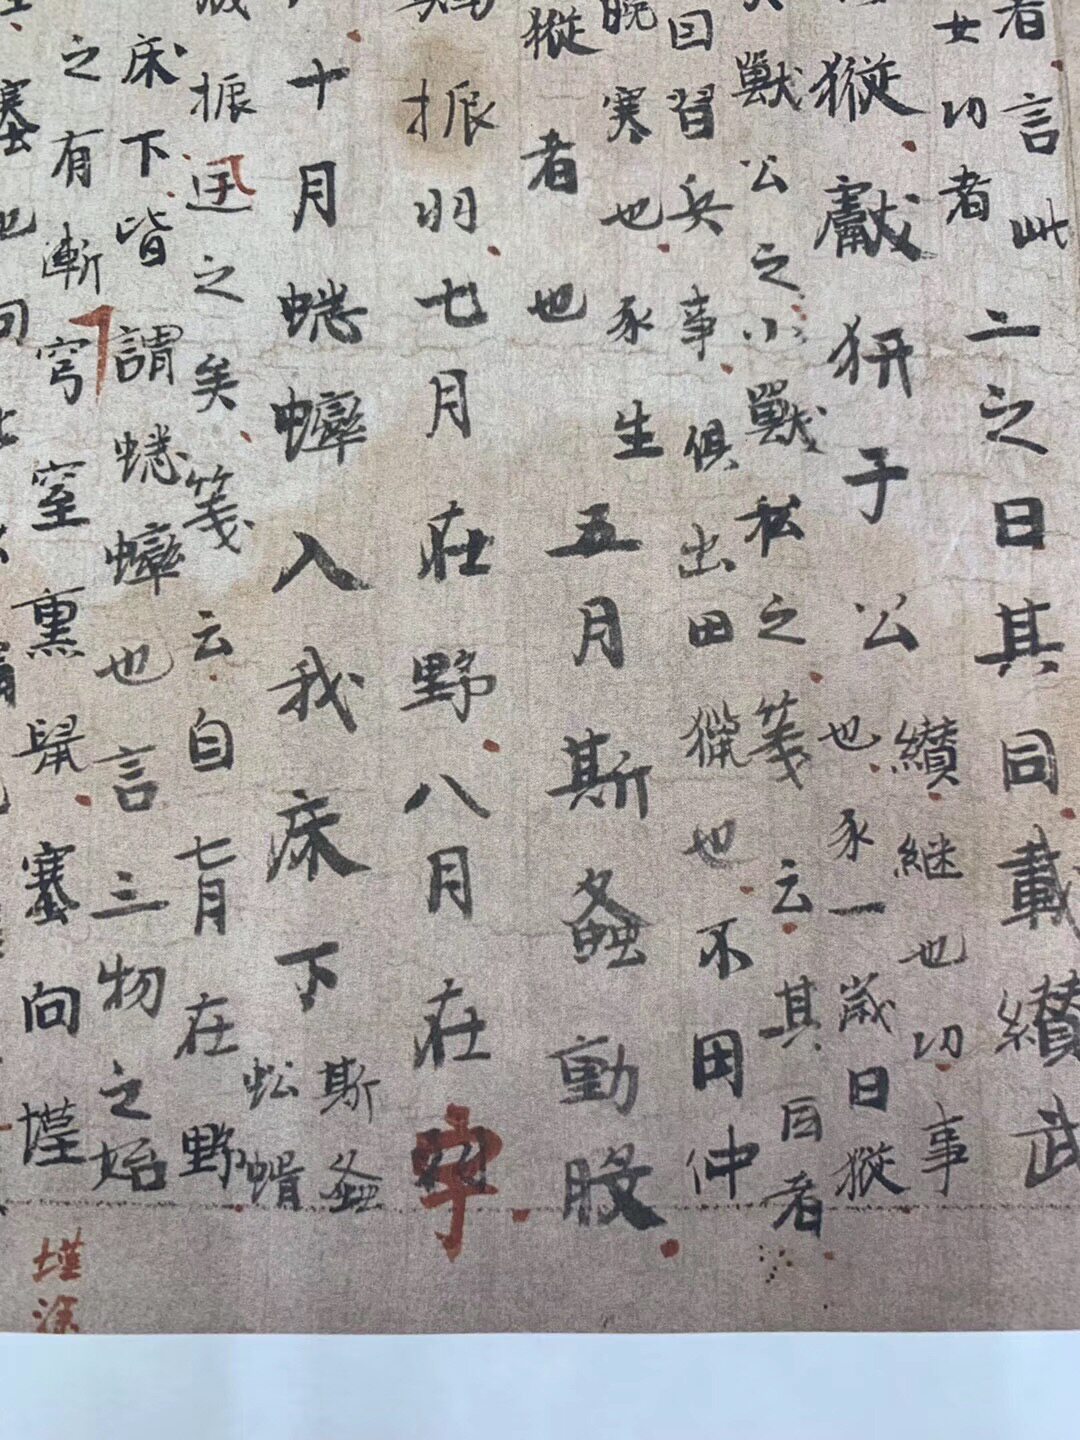 者言此二之日其同載纘武
女功者
纘継也功事
豵獻豜于公
也豕一歳日豵
獸公之小獸私之箋云其因者
因習兵事俱出田獵也不田仲
晚寒也豕生
豵者也
五月斯螽動股
振羽七月在野八月在宇
十月蟋蟀入我床下
斯螽
蚣蝑
振迅之矣箋云自七月在野
床下皆謂蟋蟀也言三物之始
之有漸穹窒熏鼠塞向墐
墐涂